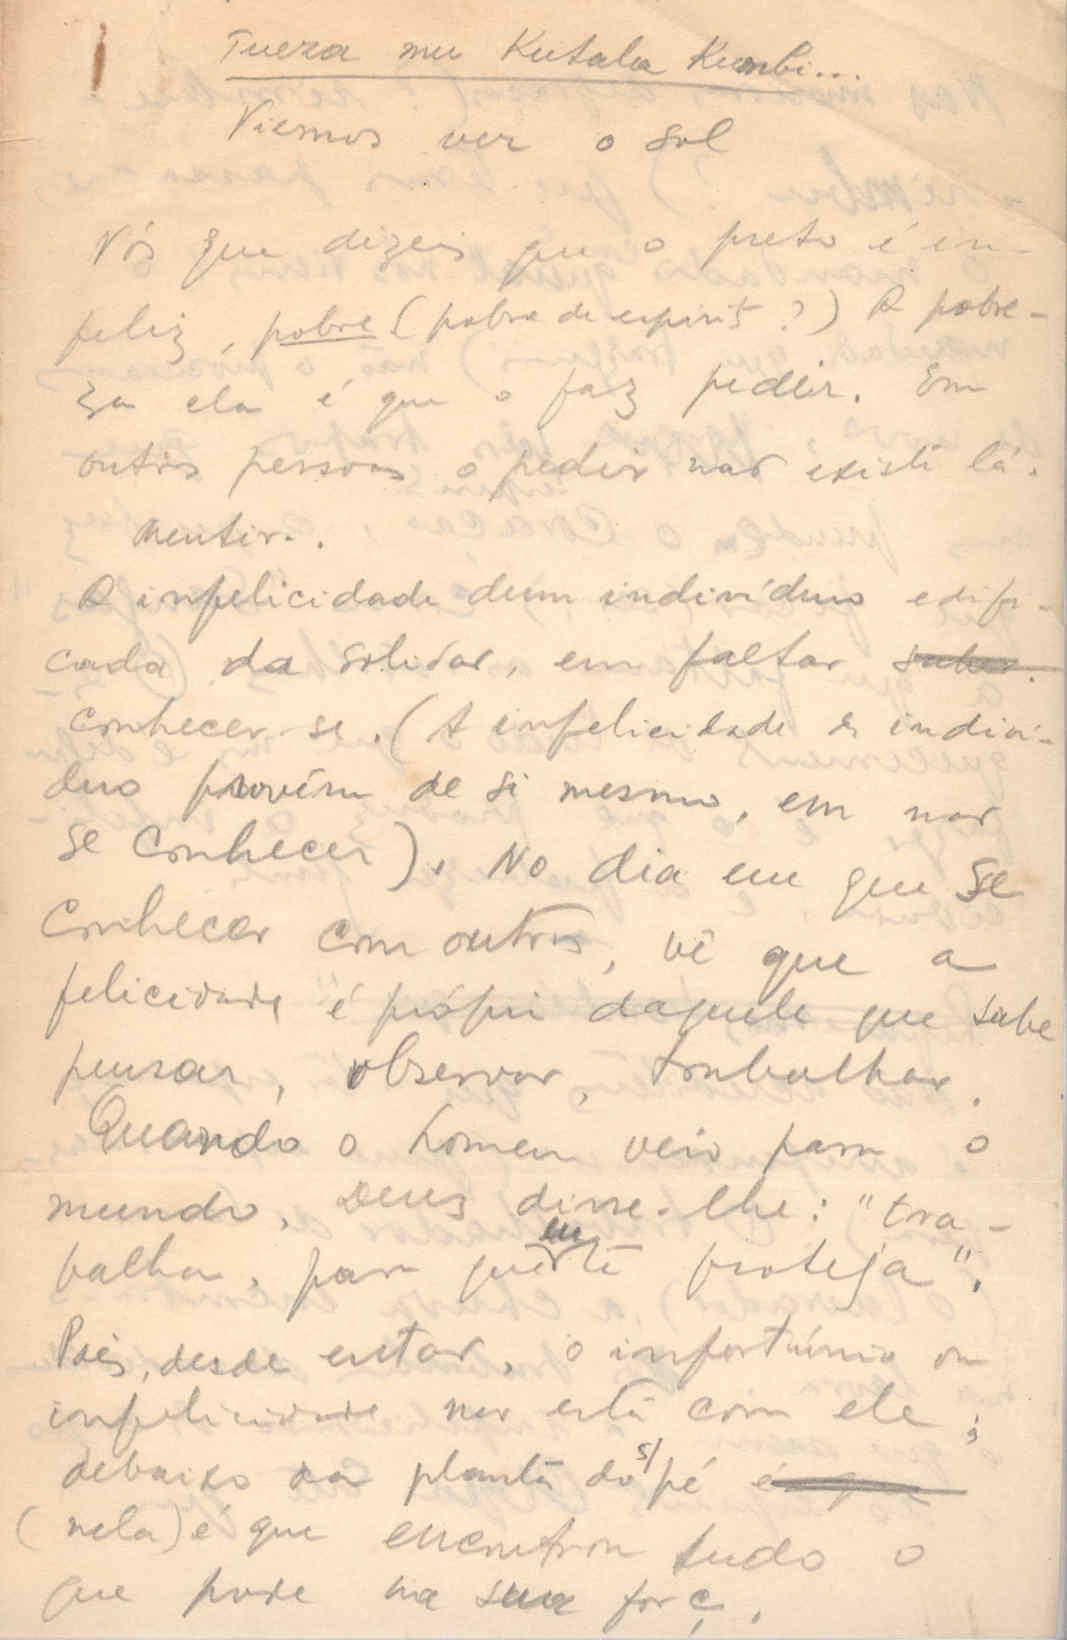 Tueza mu Kutala Kumbi...
Viemos ver o sol
Vós que dizeis que o preto é in-
feliz, pobre (pobre de espirito?) A pobre-
za ela é que o faz pedir. Em
outras pessoas o pedir nao existe lá.
Mentir..
A infelicidade dum indivíduo edifi-
cada da solidao, em faltar saber.
conhecer-se. (A infelicidade do indiví-
duo provém de si mesmo, em nao
se conhecer). No dia em que se
conhecer com outros, vê que a
felicidade é própri daquele que sabe
pensar, observar, trabalhar.
Quando o homem veio para o
mundo, Deus disse-lhe: "tra-
balha, para que eu te proteja".
Pois, desde entao, o infortúnio ou
infelicidade nao está com ele;
debaixo da planta do s/ pé é que
(nela) é que encontrou tudo o
que pode na sua forç.